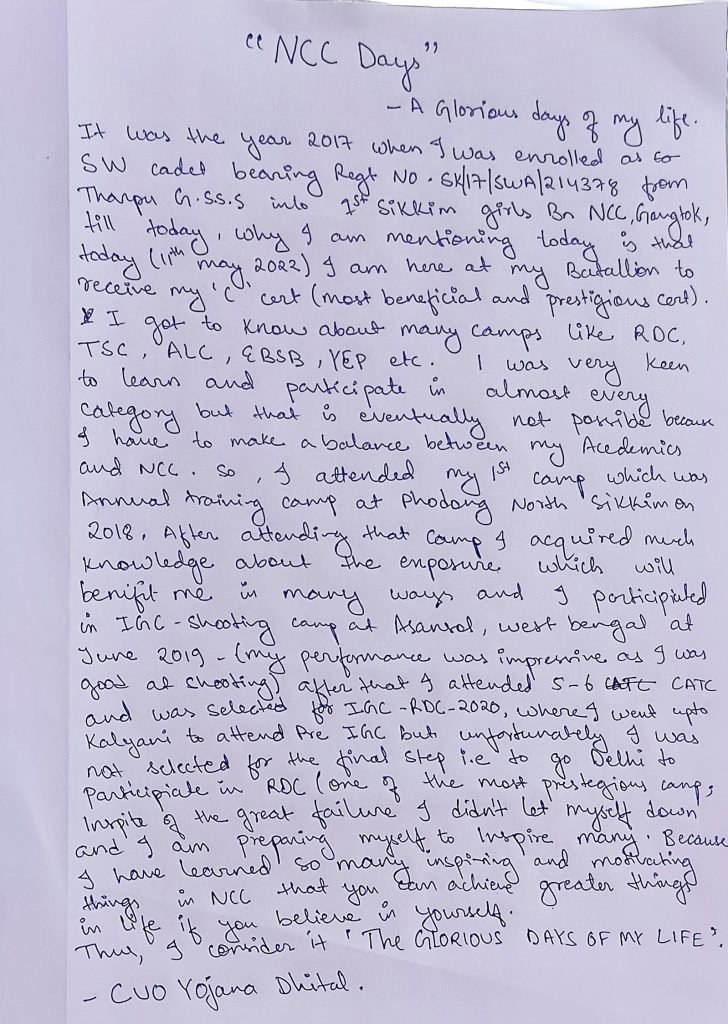 "NCC Days"
- A Glorious days of my life.
It was the year 2017 when I was enrolled as co
SW cadet bearing Regt No. SK/17/SWA/214378 from
Tharpu G.SS.S into 1st Sikkim girls Bn NCC, Gangtok,
till today, why I am mentioning today is that
today (11th may 2022) I am here at my Batallion to
receive my 'C' cert (most beneficial and prestigious cert).
I got to know about many camps like RDC,
TSC, ALC, EBSB, YEP etc. I was very keen
to learn and participate in almost every
category but that is eventually not possible because
I have to make a balance between my Acedemics
and NCC. So, I attended my 1st camp which was
Annual training camp at Phodong North Sikkim on
2018. After attending that camp I acquired much
knowledge about the exposure which will
benifit me in many ways and I participiated
in IGC - Shooting camp at Asansol, west bengal at
June 2019 - (my performance was impressive as I was
good at shooting) after that I attended 5-6 CATC
and was selected for IGC - RDC - 2020, where I went upto
Kalyani to attend Pre IGC but unfortunately I was
not selected for the final step i.e to go Delhi to
Participiate in RDC (one of the most prestegious camp;
Inspite of the great failure I didn't let myself down
and I am preparing myself to Inspire many. Because
I have learned so many inspi-ring and motivating
things in NCC that you can achieve greater things
in life if you believe in yourself.
Thus, I consider it 'The GLORIOUS DAYS OF MY LIFE'.
- CUO Yojana Dhital.